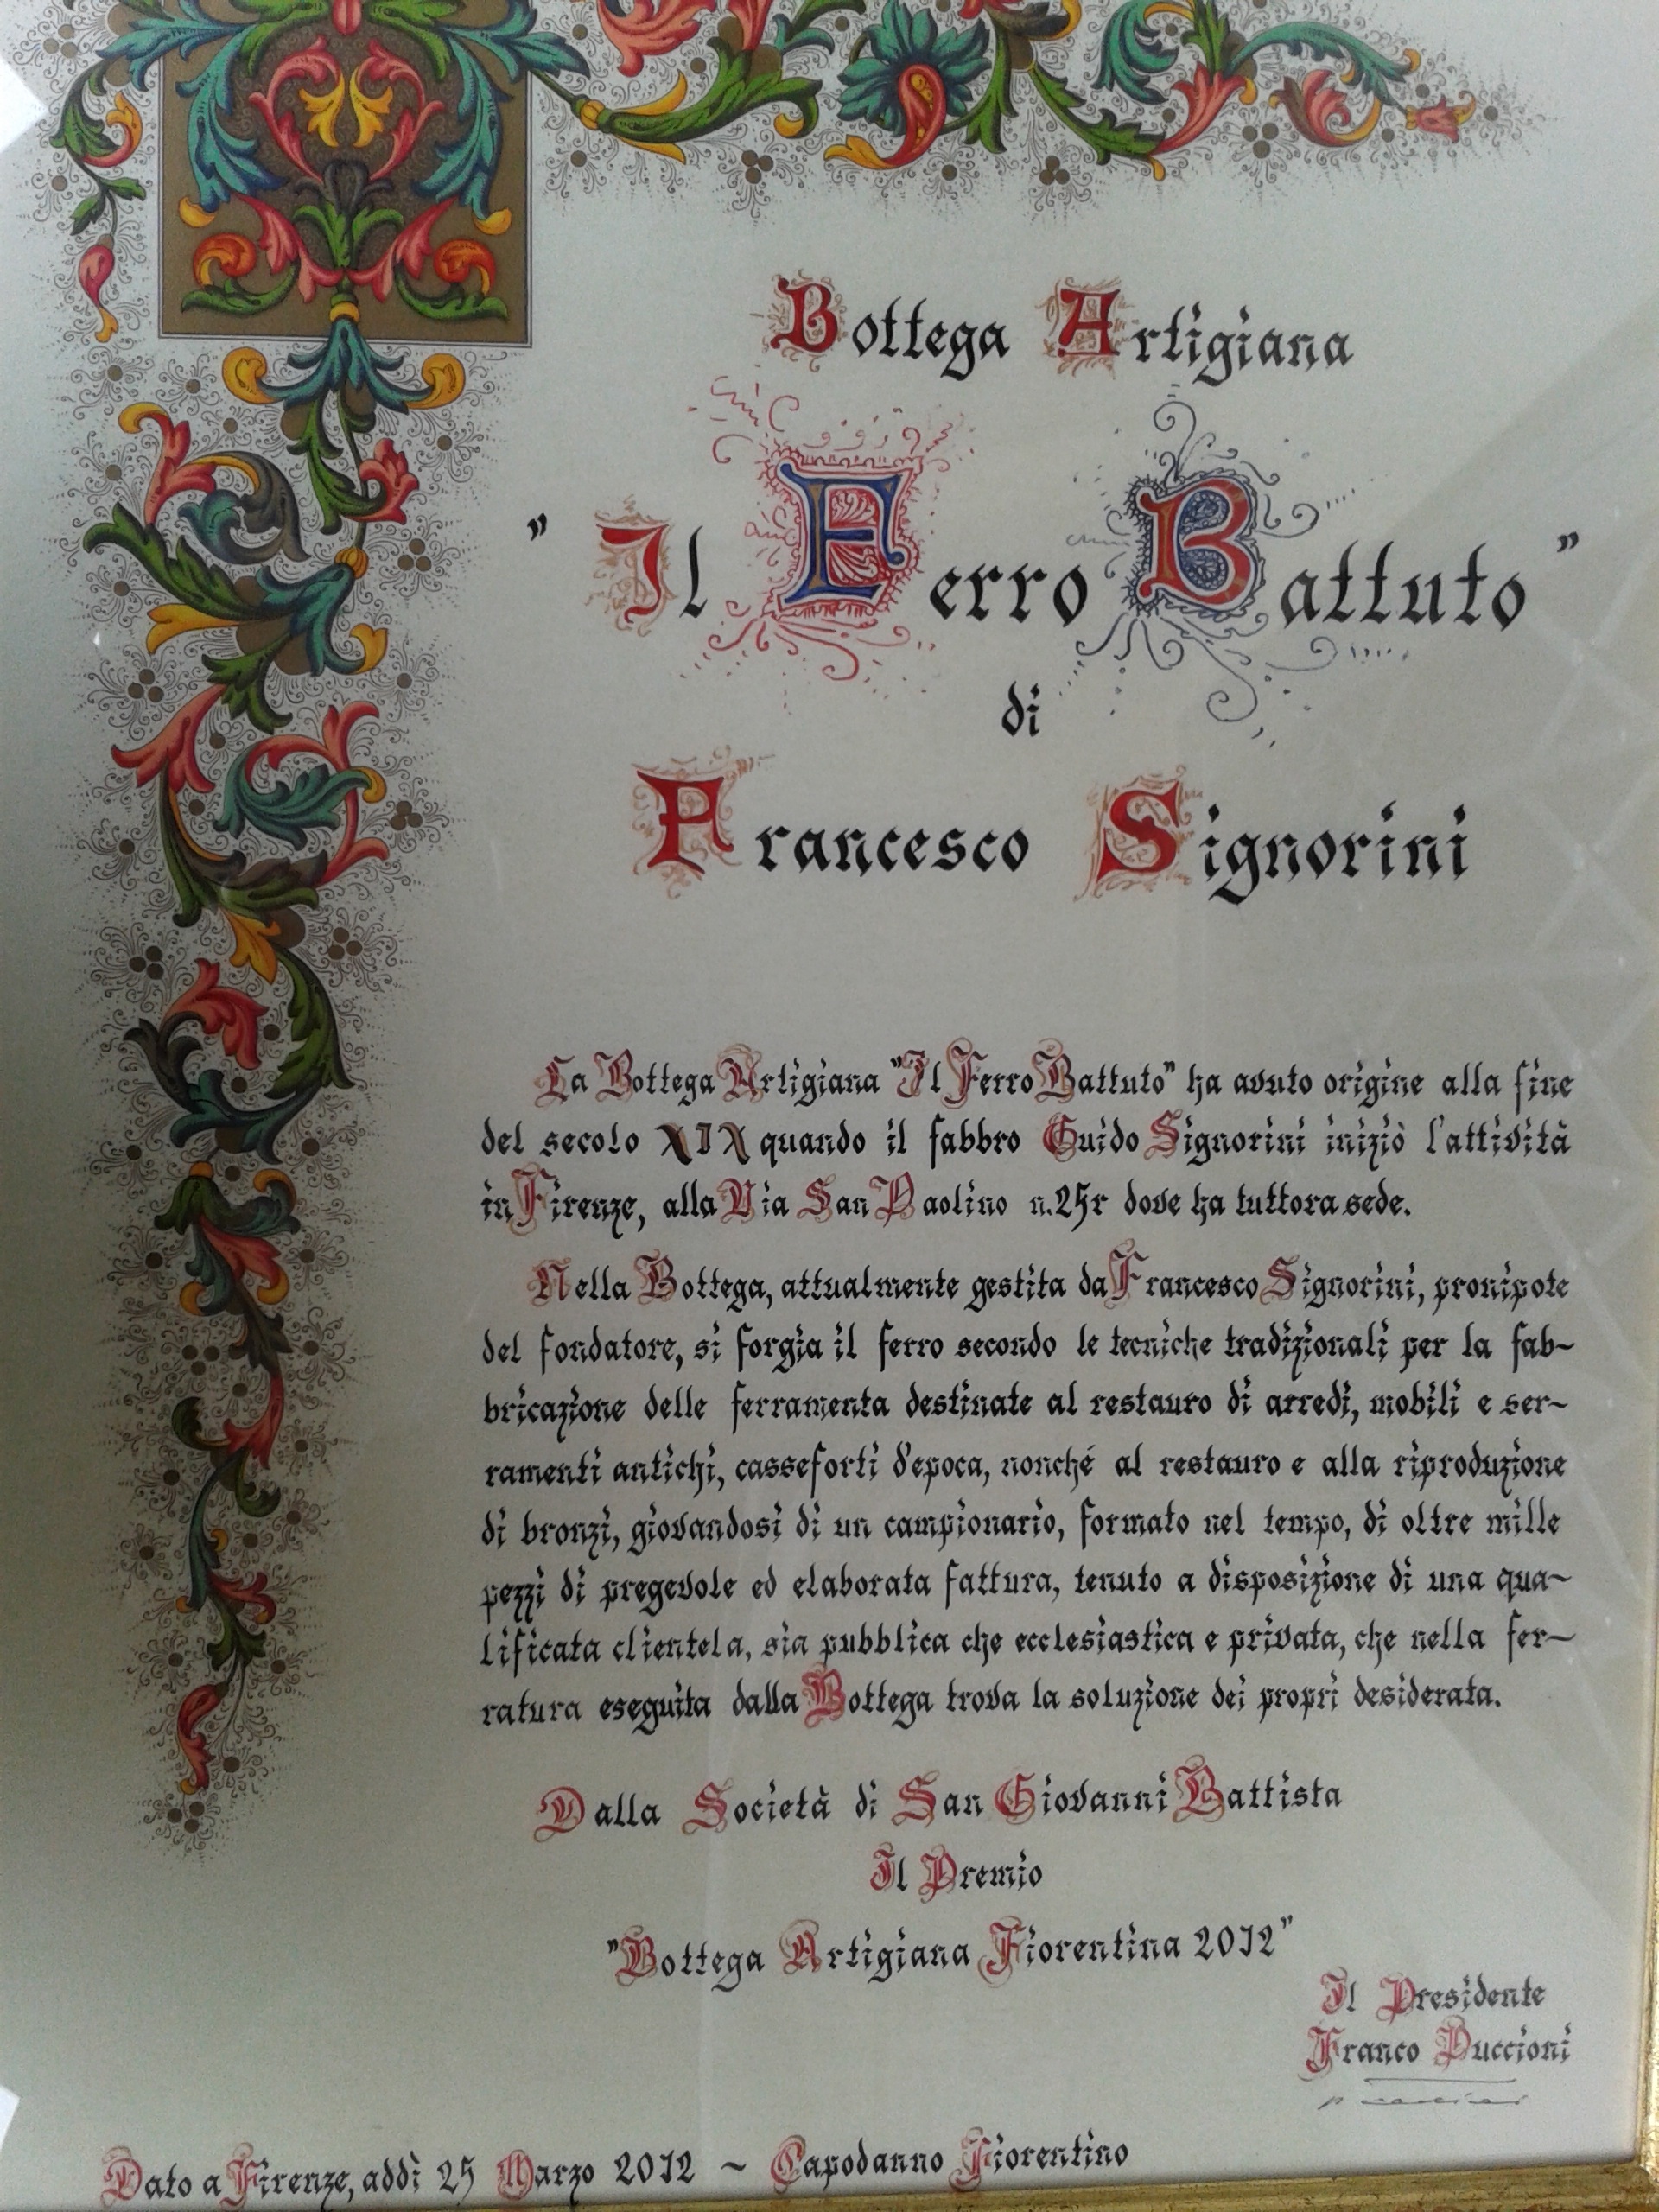 Bottega Artigiana
" Il Ferro Battuto "
di
Francesco Signorini
La Bottega Artigiana "Il Ferro Battuto" ha avuto origine alla fine
del secolo XIX quando il fabbro Guido Signorini iniziò l'attività
in Firenze, alla Via San Paolino n.25r dove ha tuttora sede.
Nella Bottega, attualmente gestita da Francesco Signorini, pronipote
del fondatore, si forgia il ferro secondo le tecniche tradizionali per la fab~
bricazione delle ferramenta destinate al restauro di arredi, mobili e ser~
ramenti antichi, casseforti d'epoca, nonché al restauro e alla riproduzione
di bronzi, giovandosi di un campionario, formato nel tempo, di oltre mille
pezzi di pregevole ed elaborata fattura, tenuto a disposizione di una qua~
lificata clientela, sia pubblica che ecclesiastica e privata, che nella fer~
ratura eseguita dalla Bottega trova la soluzione dei propri desiderata.
Dalla Società di San Giovanni Battista
Il Premio
"Bottega Artigiana Fiorentina 2012"
Il Presidente
Franco Puccioni
Dato a Firenze, addì 25 Marzo 2012 ~ Capodanno Fiorentino